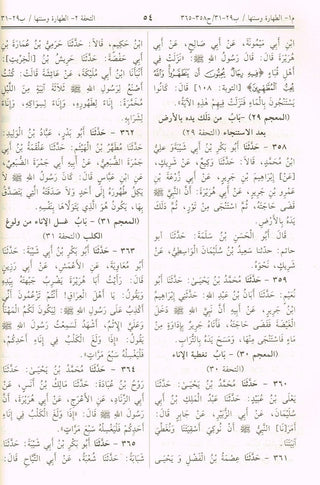 م١- الطهارة وسننها / ب٢٩-٣١/ح٣٥٨-٣٦٥
٥٤
التحفة ٢- الطهارة وسننها / ب٢٩-٣١
ابْنِ أَبِي مَيْمُونَةَ، عَنْ أَبِي صَالِحٍ، عَنْ أَبِي
أَهْلِ قُبَاءَ ﴿فِيهِ رِجَالٌ يُحِبُّونَ أَن يَتَطَهَّرُوا وَاللَّهُ
يُحِبُّ الْمُطَّهِّرِينَ﴾ [التوبة: ١٠٨] قَالَ: كَانُوا
يَسْتَنْجُونَ بِالْمَاءِ فَنَزَلَتْ فِيهِمْ هَذِهِ الْآيَةُ».
(المعجم ٢٩) - بَابُ من دلك يده بالأرض
بعد الاستنجاء (التحفة ٢٩)
٣٥٨- حَدَّثَنَا أَبُو بَكْرِ بْنُ أَبِي شَيْبَةَ، وَعَلِيُّ
ابْنُ مُحَمَّدٍ، قَالَا: حَدَّثَنَا وَكِيعٌ، عَنْ شَرِيكٍ،
[عَنْ] إِبْرَاهِيمَ بْنِ جَرِيرٍ، عَنْ أَبِي زُرْعَةَ بْنِ
عَمْرِو بْنِ جَرِيرٍ، عَنْ أَبِي هُرَيْرَةَ: أَنَّ النَّبِيَّ ﷺ
قَضَى حَاجَتَهُ، ثُمَّ اسْتَنْجَى مِنْ تَوْرٍ، ثُمَّ دَلَكَ
يَدَهُ بِالْأَرْضِ.
قَالَ أَبُو الْحَسَنِ بْنُ سَلَمَةَ: حَدَّثَنَا أَبُو
حَاتِمٍ: حَدَّثَنَا سَعِيدُ بْنُ سُلَيْمَانَ الْوَاسِطِيُّ، عَنْ
شَرِيكٍ، نَحْوَهُ.
٣٥٩- حَدَّثَنَا مُحَمَّدُ بْنُ يَحْيَى: حَدَّثَنَا أَبُو
نُعَيْمٍ: حَدَّثَنَا أَبَانُ بْنُ عَبْدِ اللهِ: حَدَّثَنِي إِبْرَاهِيمُ
ابْنُ جَرِيرٍ، عَنْ أَبِيهِ أَنَّ نَبِيَّ اللهِ ﷺ دَخَلَ
الْغَيْضَةَ فَقَضَى حَاجَتَهُ، فَأَتَاهُ جَرِيرٌ بِإِدَاوَةٍ مِنْ
مَاءٍ فَاسْتَنْجَى مِنْهَا، وَمَسَحَ يَدَهُ بِالتُّرَابِ.
(المعجم ٣٠) - بَابُ تغطية الإناء
(التحفة ٣٠)
٣٦٠- حَدَّثَنَا مُحَمَّدُ بْنُ يَحْيَى: حَدَّثَنَا
سُلَيْمَانَ، عَنْ أَبِي الزُّبَيْرِ، عَنْ جَابِرٍ قَالَ:
أَمَرَ[نَا] النَّبِيُّ ﷺ أَنْ نُوكِيَ أَسْقِيَتَنَا وَنُغَطِّيَ
آنِيَتَنَا.
٣٦١- حَدَّثَنَا عِصْمَةُ بْنُ الْفَضْلِ وَ يَحْيَى
ابْنُ حَكِيمٍ، قَالَا: حَدَّثَنَا حَرَمِيُّ بْنُ عُمَارَةَ بْنِ
أَبِي حَفْصَةَ: حَدَّثَنَا حَرِيشُ بْنُ [الْخِرِّيتِ]:
أَنْبَأَنَا ابْنُ أَبِي مُلَيْكَةَ، عَنْ عَائِشَةَ قَالَتْ: كُنْتُ
أَصْنَعُ لِرَسُولِ اللهِ ﷺ ثَلَاثَةَ آنِيَةٍ مِنَ اللَّيْلِ
مُخَمَّرَةً: إِنَاءً لِطَهُورِهِ، وَإِنَاءً لِسِوَاكِهِ، وَإِنَاءً
لِشَرَابِهِ.
٣٦٢- حَدَّثَنَا أَبُو بَدْرٍ، عَبَّادُ بْنُ الْوَلِيدِ:
حَدَّثَنَا مُطَهَّرُ بْنُ الْهَيْثَمِ: حَدَّثَنَا عَلْقَمَةُ بْنُ أَبِي
جَمْرَةَ الضُّبَعِيُّ، عَنْ أَبِيهِ أَبِي جَمْرَةَ الضُّبَعِيِّ،
عَنِ ابْنِ عَبَّاسٍ قَالَ: كَانَ رَسُولُ اللهِ ﷺ لَا
يَكِلُ طُهُورَهُ إِلَى أَحَدٍ وَلَا صَدَقَتَهُ الَّتِي يَتَصَدَّقُ
بِهَا، يَكُونُ هُوَ الَّذِي يَتَوَلَّاهَا بِنَفْسِهِ.
(المعجم ٣١) - بَابُ غسل الإناء من ولوغ
الكلب (التحفة ٣١)
٣٦٣- حَدَّثَنَا أَبُو بَكْرِ بْنُ أَبِي شَيْبَةَ: حَدَّثَنَا
أَبُو مُعَاوِيَةَ، عَنِ الْأَعْمَشِ، عَنْ أَبِي رَزِينٍ
قَالَ: رَأَيْتُ أَبَا هُرَيْرَةَ يَضْرِبُ جَبْهَتَهُ بِيَدِهِ
وَيَقُولُ: يَا أَهْلَ الْعِرَاقِ! أَنْتُمْ تَزْعُمُونَ أَنِّي
أَكْذِبُ عَلَى رَسُولِ اللهِ ﷺ لِيَكُونَ لَكُمُ الْمَهْنَأُ
وَعَلَيَّ الْإِثْمُ، أَشْهَدُ لَسَمِعْتُ رَسُولَ اللهِ ﷺ
يَقُولُ: «إِذَا وَلَغَ الْكَلْبُ فِي إِنَاءِ أَحَدِكُمْ،
فَلْيَغْسِلْهُ سَبْعَ مَرَّاتٍ».
٣٦٤- حَدَّثَنَا مُحَمَّدُ بْنُ يَحْيَى: حَدَّثَنَا
رَوْحُ بْنُ عُبَادَةَ: حَدَّثَنَا مَالِكُ بْنُ أَنَسٍ، عَنْ
أَبِي الزِّنَادِ، عَنِ الْأَعْرَجِ، عَنْ أَبِي هُرَيْرَةَ، أَنَّ
رَسُولَ اللهِ ﷺ قَالَ: «إِذَا وَلَغَ الْكَلْبُ فِي إِنَاءِ
أَحَدِكُمْ فَلْيَغْسِلْهُ سَبْعَ مَرَّاتٍ».
٣٦٥- حَدَّثَنَا أَبُو بَكْرِ بْنُ أَبِي شَيْبَةَ: حَدَّثَنَا
شَبَابَةُ: حَدَّثَنَا شُعْبَةُ، عَنْ أَبِي التَّيَّاحِ قَالَ: